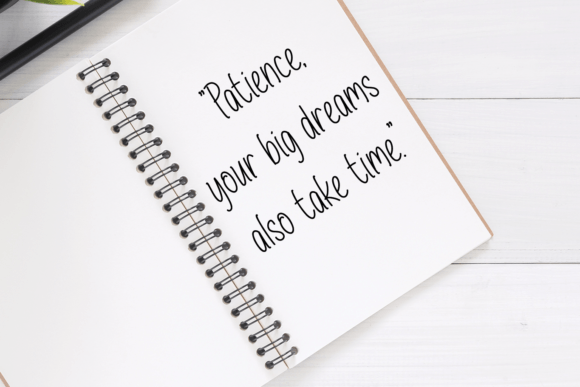 "Patience,
your big dreams
also take time".